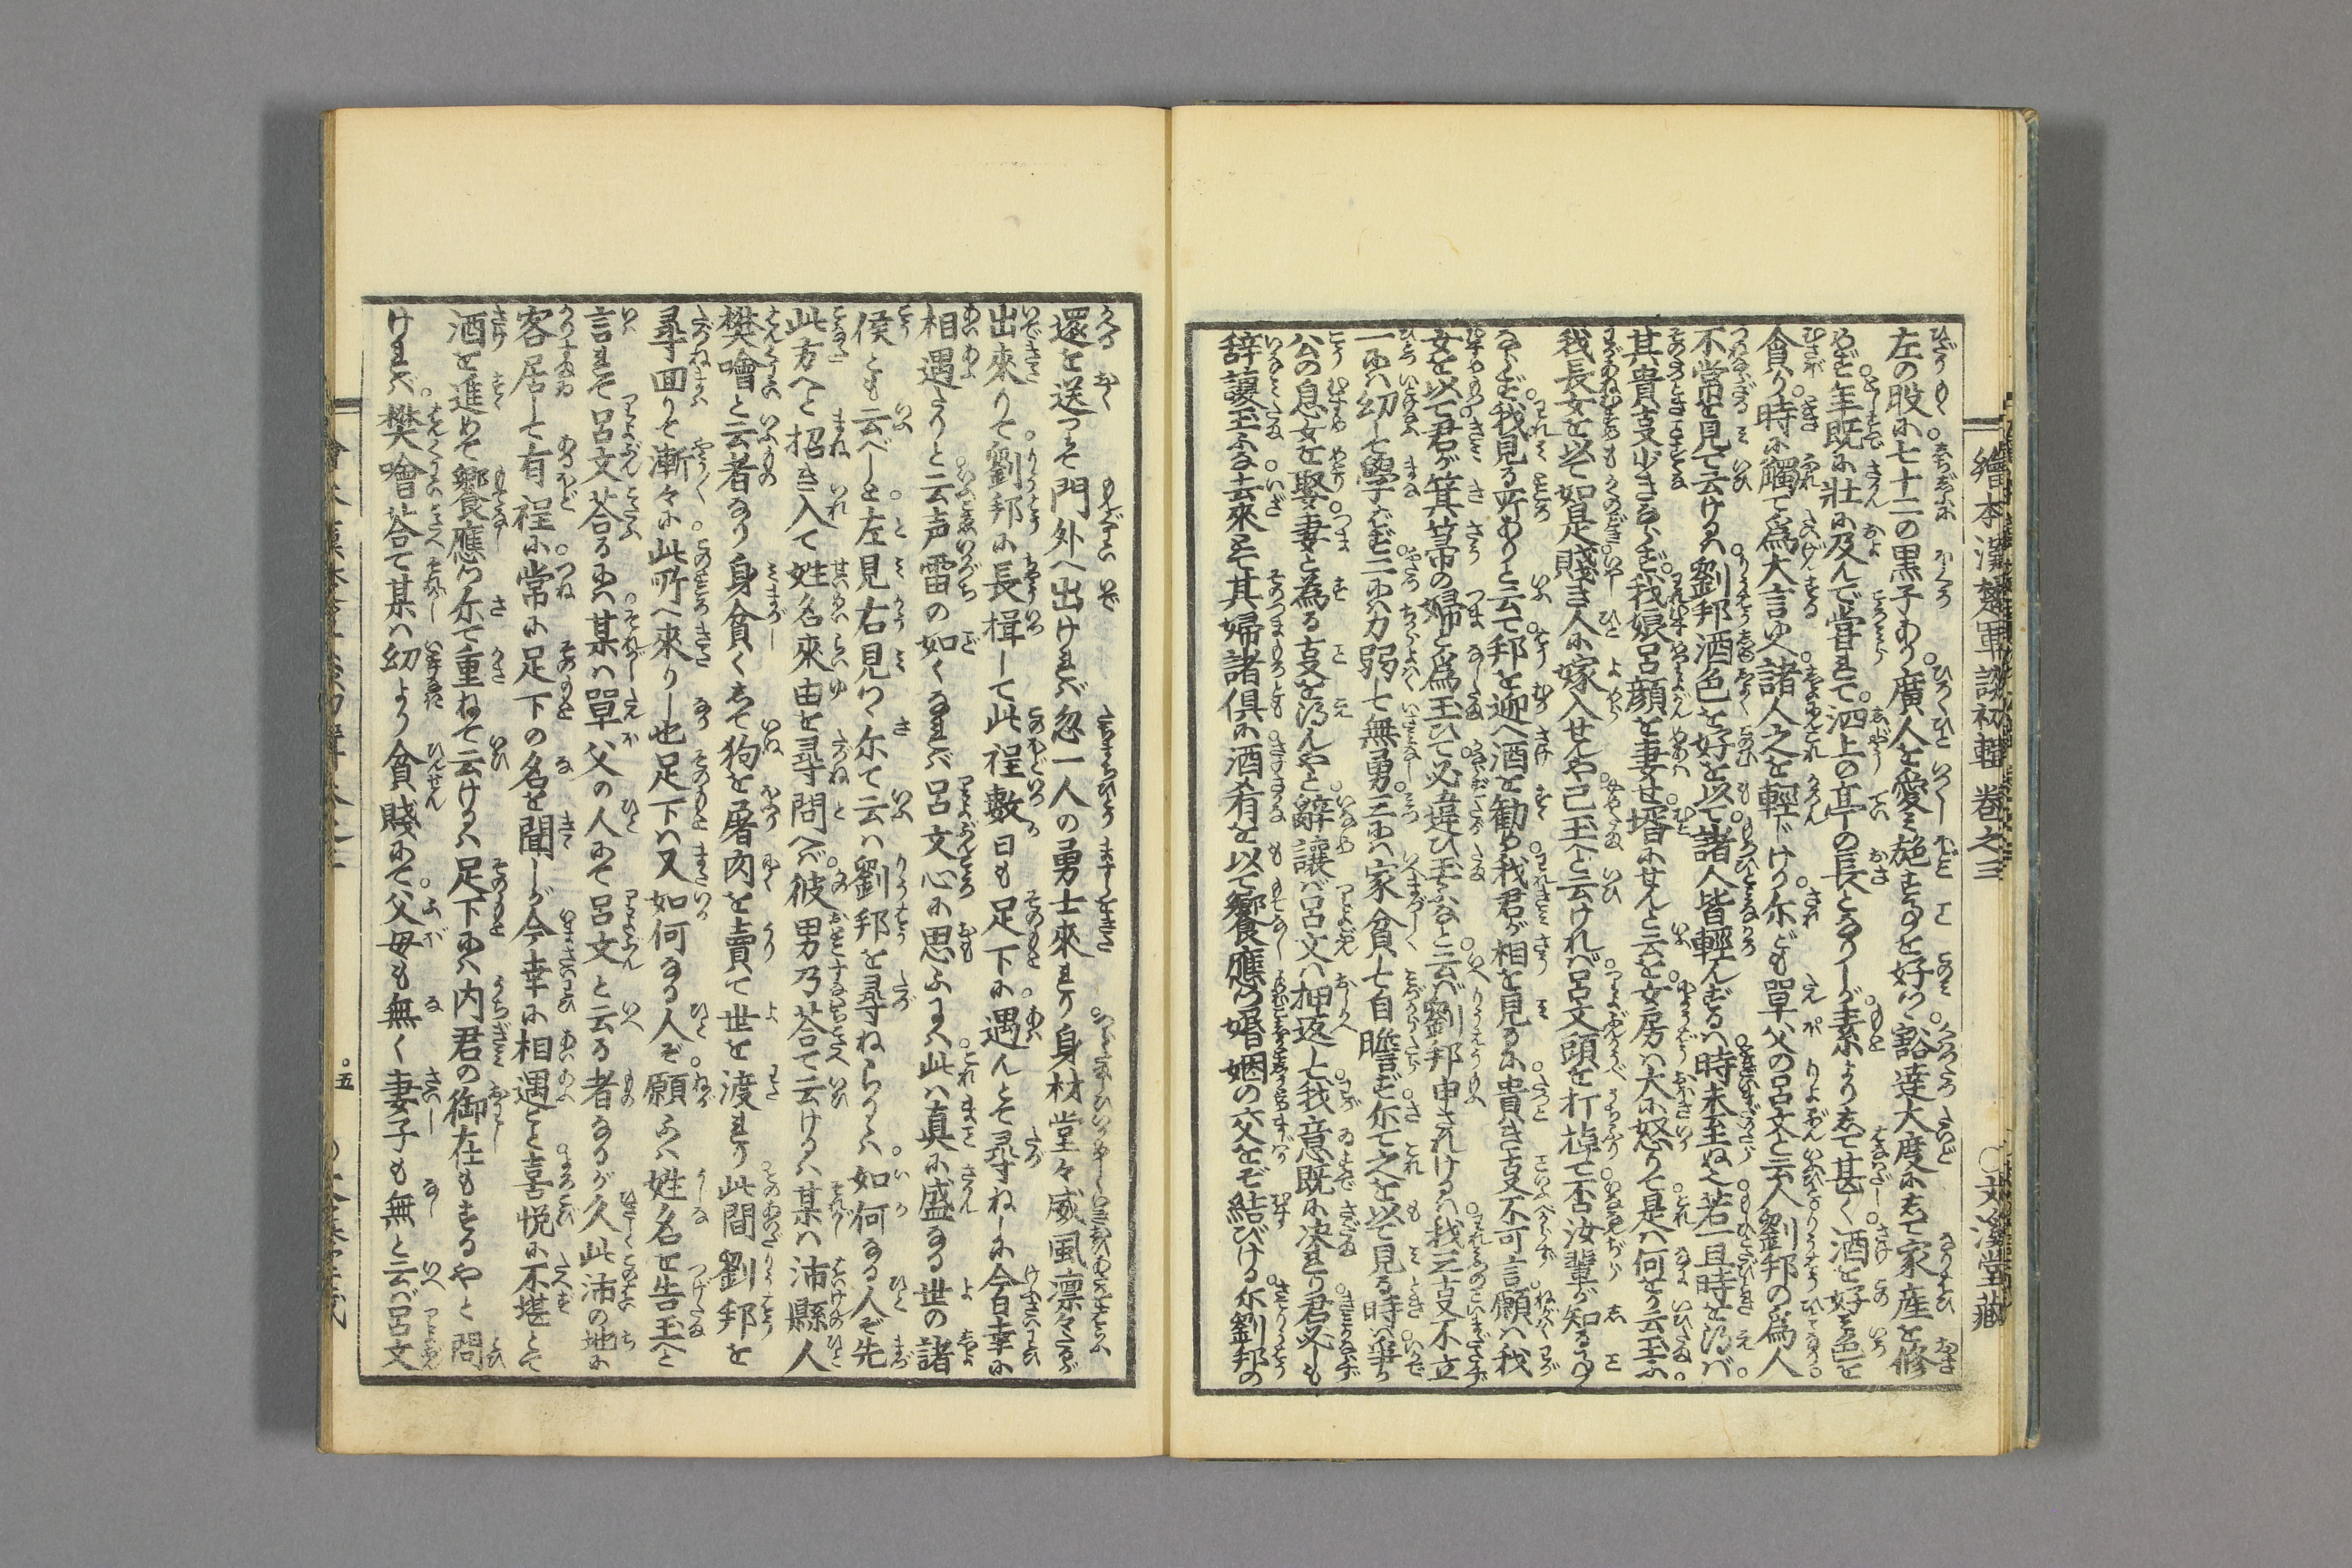 繪本漢楚軍談初輯 巻之三 ○文溪堂藏
左の股に七十二の黒子あり廣人を愛ミ施すことを好ミ豁達大度にして家産を修
めず年既に壮に及んで嘗ミて泗上の亭の長となりしが素よりして甚しく酒を好ミ色を
貪り時に觸て爲大言ゆへ諸人之を輕ドける尓ども單父の呂文と云人劉邦の爲人
不常を見て云けるハ劉邦酒色を好を以て諸人皆輕んずるハ時未至ねバ若一旦時を得バ
其貴支少きならず我娘呂顔を妻せ壻にせんと云を女房ハ大に怒りて是ハ何を云玉ふ
我長女を以て如是賤き人に嫁入せんや已玉へと云ければ呂文頭を打掉て否汝輩が知る事
ならず我見る所ありと云て邦を迎へ酒を勧め我君が相を見るに貴き支不可言願ハ我
女を以て君が箕箒の婦と爲玉ひて必違ひ玉ふなと云バ劉邦申されけるハ我三支不立
一にハ幼して學ばず二にハ力弱して無勇三にハ家貧して自贍ず尓て之を以て見る時ハ争か
公の息女を娶妻と為る支を得んやと辭讓バ呂文ハ押返して我意既に決まり君必しも
辞讓玉ふな去來とて其婦諸倶に酒肴を以て饗應つ婚姻の交をぞ結びける尓劉邦の
還を送つて門外へ出ければ忽一人の勇士來まり身材堂々威風凛々たるが
出來りて劉邦に長揖して此程數日も足下に遇んとて尋ねしに今日幸に
相遇たりと云声雷の如くなれば呂文心に思ふにハ此ハ真に盛なる世の諸
侯とも云べしと左見右見つく尓て云ハ劉邦を尋ねらるゝハ如何なる人ぞ先
此方へと招き入て姓名來由を尋問へバ彼男乃荅て云けるハ某ハ沛縣人
樊噲と云者なり身貧くして狗を屠肉を賣て世を渡まり此間劉邦を
尋回りて漸々に此所へ來りし也足下ハ又如何なる人ぞ願ふハ姓名を告玉へと
言まて呂文荅るにハ某ハ單父の人にて呂文と云る者なるが久此沛の地に
客居して有程に常に足下の名を聞しが今幸に相遇こと喜悦に不堪とて
酒を進めて饗應つ尓て重ねて云けるハ足下にハ内君の御在もするやと問
ければ樊噲荅て某ハ幼より貧賤にて父母も無く妻子も無と云バ呂文
五